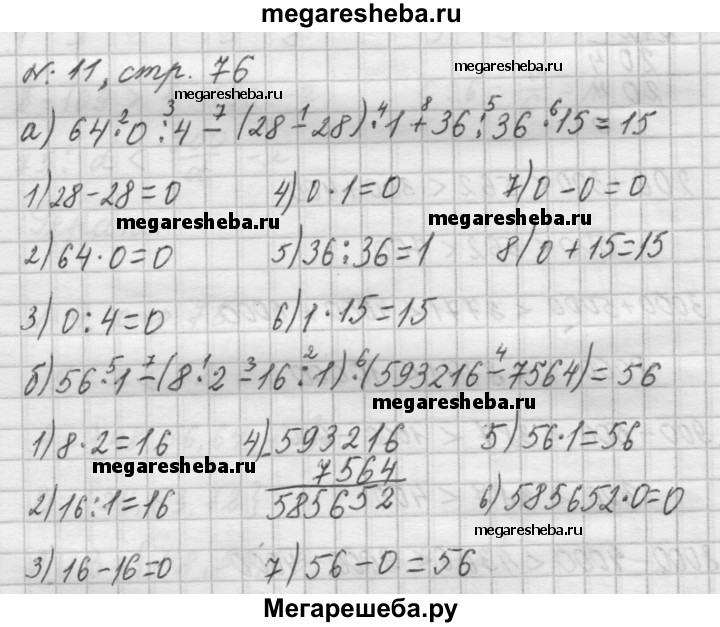 megaresheba.ru
№ 11, стр. 76
megaresheba.ru
megaresheba.ru
а) 64·0:4-(28-28)·1+36:36·15=15
2 3 7 1 4 8 5 6
1) 28-28=0 4) 0·1=0 7) 0-0=0
megaresheba.ru megaresheba.ru
2) 64·0=0 5) 36:36=1 8) 0+15=15
3) 0:4=0 6) 1·15=15
б) 56·1-(8·2-16:1)·(593216-7564)=56
5 7 1 3 2 6 4
megaresheba.ru
1) 8·2=16 4) -593216 5) 56·1=56
megaresheba.ru
7564
2) 16:1=16 585652 6) 585652·0=0
megaresheba.ru
3) 16-16=0 7) 56-0=56
Мегарешеба.ру